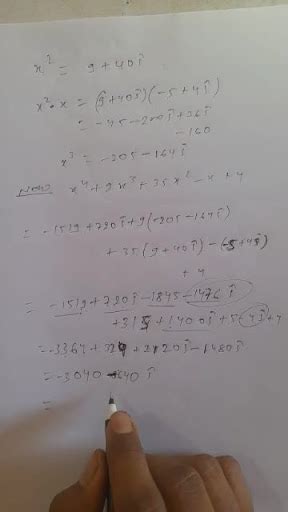 x² = 9 + 40î
x²·x = (9+40î)(-5+4î)
= -45-200î+36î
-160
x³ = -205-164î
Now x⁴+9x³+35x²-x+4
= -1519+720î+9(-205-164î)
+35(9+40î)-(-5+4î)
+4
= -1519+720î-1845-1476î
+315+1400î+5-4î+4
= -3364+324+2120î-1480î
= -3040 640î
=